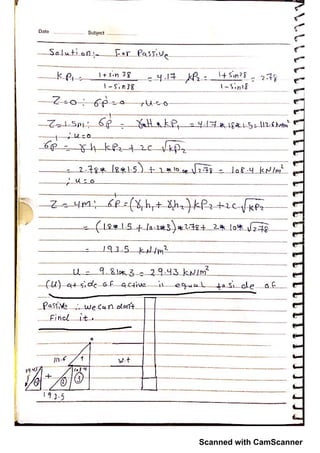 Date Subject
Solution:- For Passive
k.P₁ = 1+sin 38 / 1-sin38 = 4.17 kP₂ = 1+sin28 / 1-sin28 = 2.78
Z=0 : 6p = 0 , u=0
Z=1.5m: 6p = γH * kP₁ = 4.17 * 18 * 1.5 = 112.6 kN/m²
; u=0
6p = γh kP₂ + 2c √kP₂
= 2.78* 18*1.5) + 2*10* √2.78 = 108.4 kN/m²
; u=0
Z=4m: 6p = (γh₁ + γh₂) kP₂ + 2c √kP₂
= (18*1.5 + *3)*2.78 + 2* 10* √2.78
= 193.5 kN/m²
u = 9.81*3 = 29.43 kN/m²
(u) at side of active is equal to side of
Passive ∴ we can don't
Find it.
112.6 1 w.t
+ 2 3
193.5